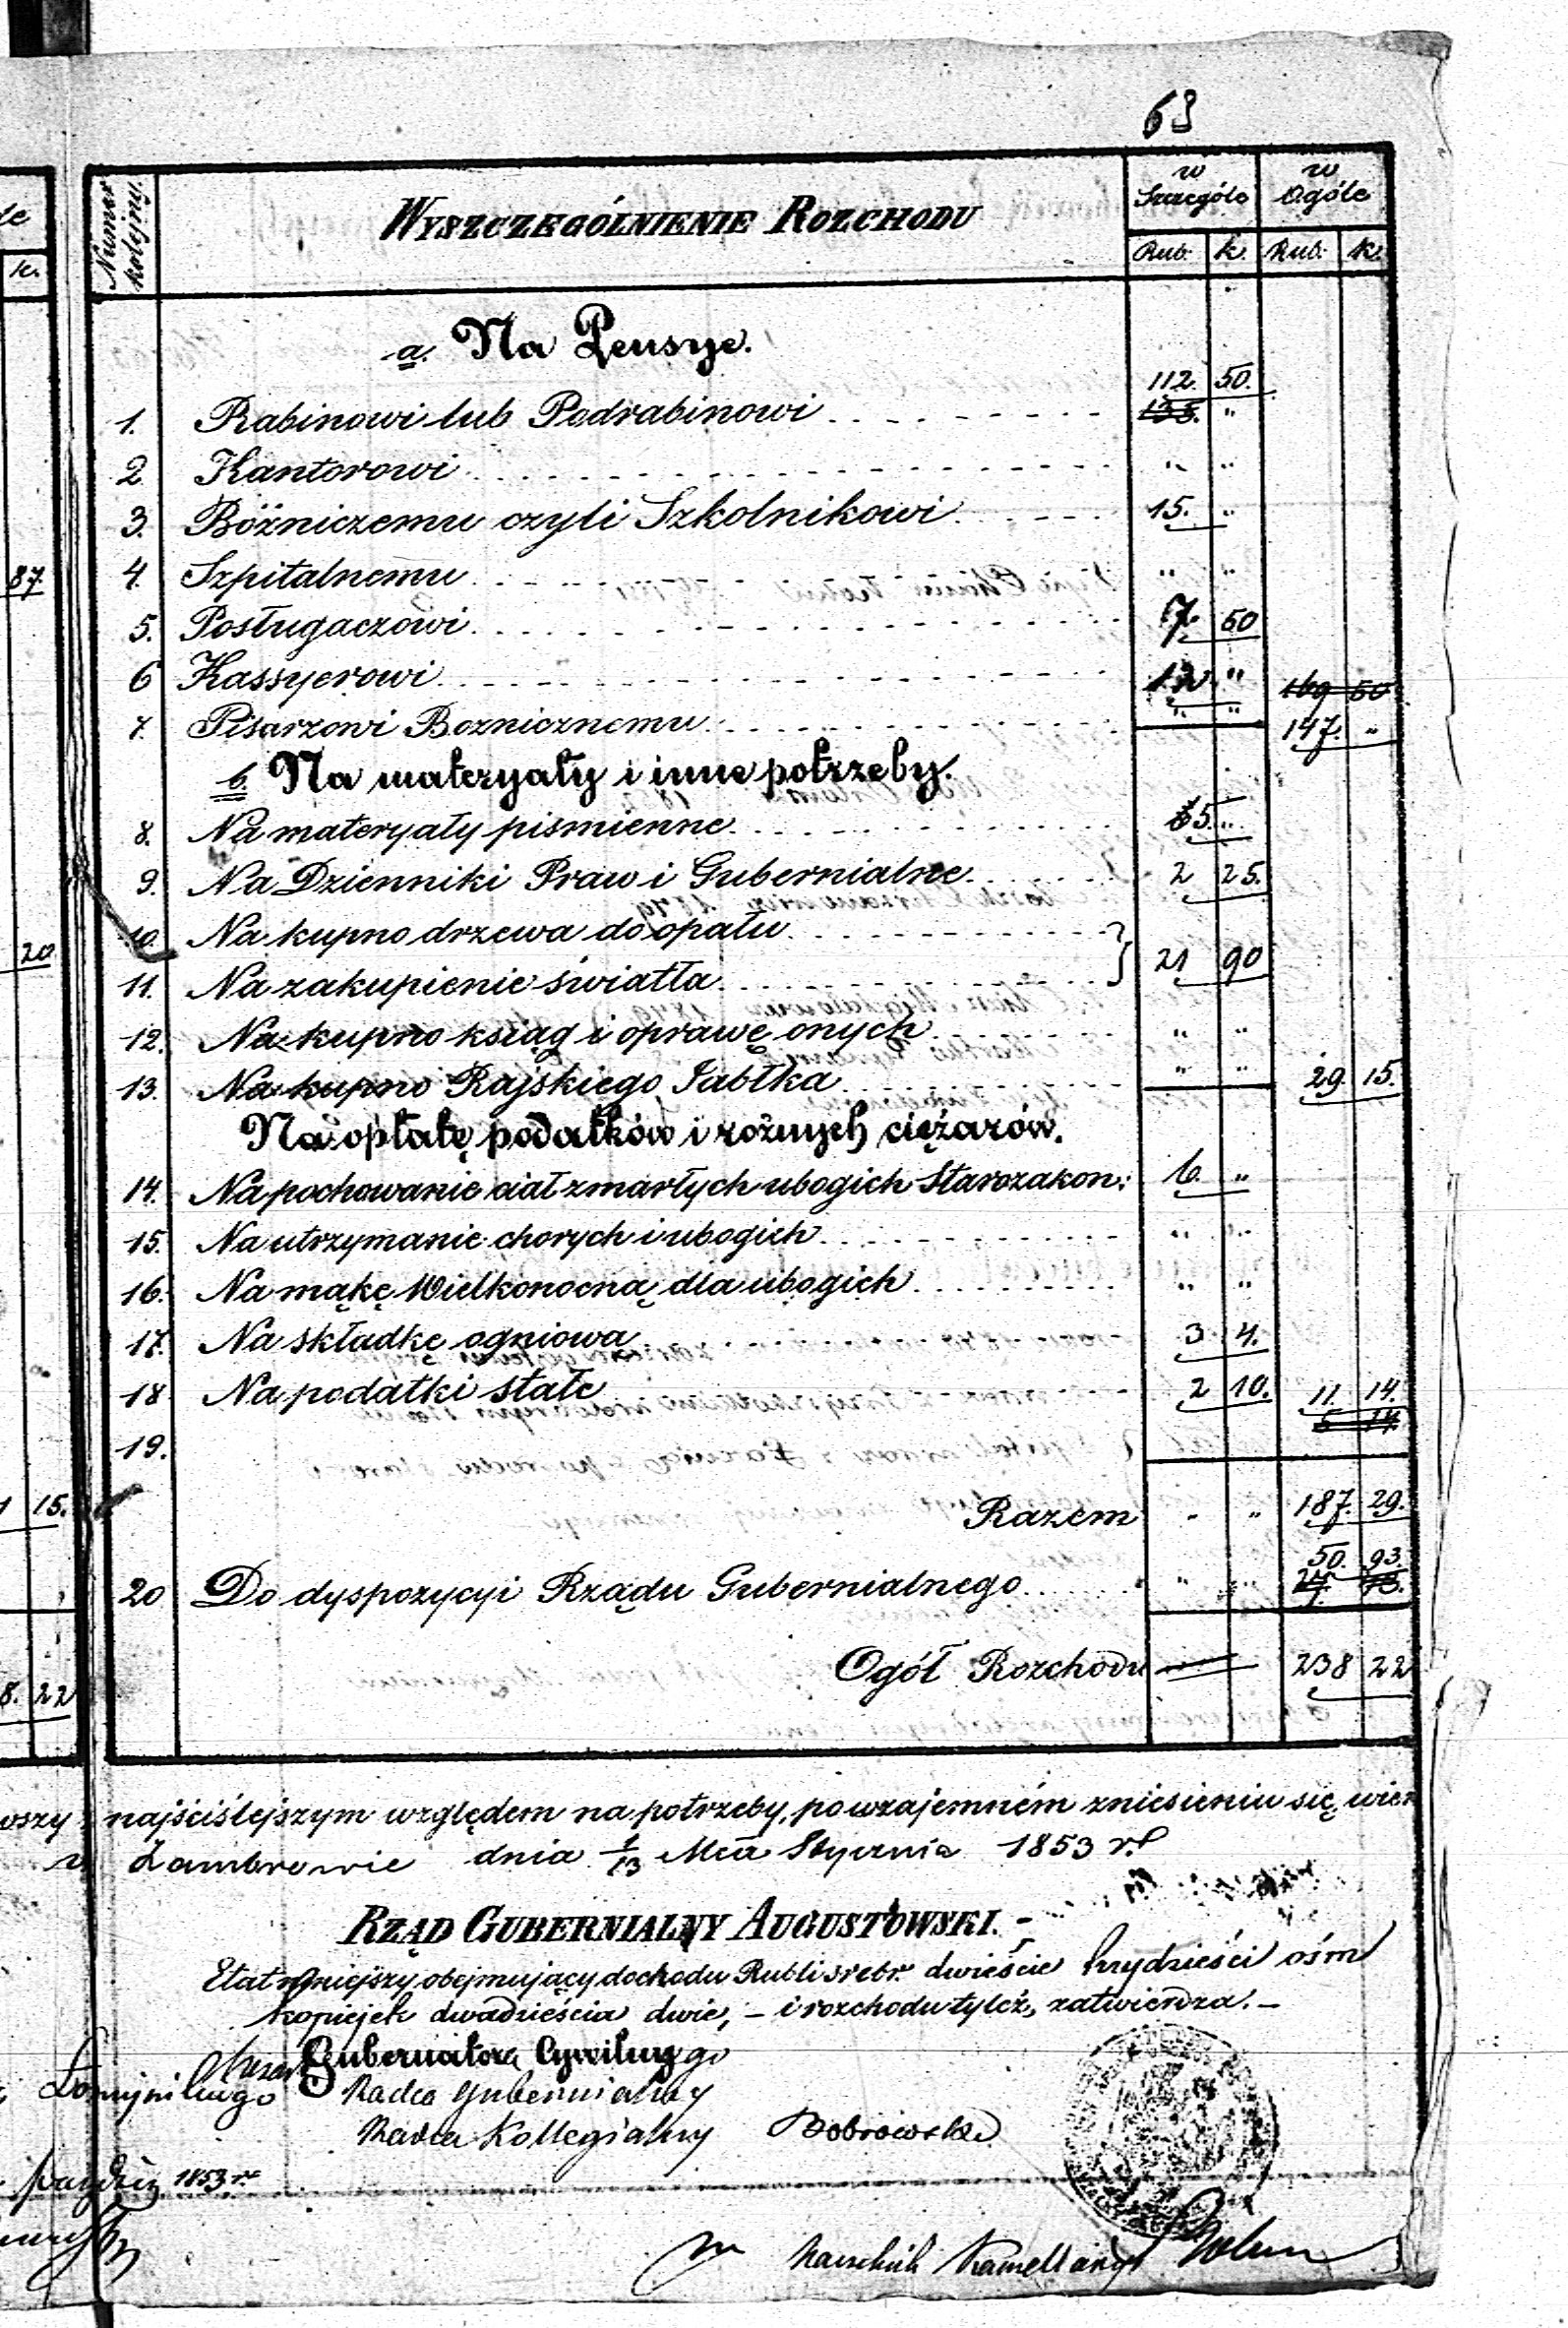 63
Numer kolejny.
WYSZCZEGÓLNIENIE ROZCHODU
w Szczególe
w Ogóle
Rub. k. Rub. k.
k.
a. Na Pensye.
112. 50.
1. Rabinowi lub Podrabinowi 135. "
2. Kantorowi " "
3. Bóżniczemu czyli Szkolnikowi 15. "
87.
4. Szpitalnemu " "
5. Posługaczowi 7. 50
6 Kassyerowi 12. " 169 50
7. Pisarzowi Boznicznemu " " 147. "
b. Na materyały i inne potrzeby.
8. Na materyały pismienne 5. "
9. Na Dzienniki Praw i Gubernialne 2 25.
10. Na kupno drzewa do opału
20
11. Na zakupienie światła } 21 90
12. Na kupno ksiąg i oprawę onych " "
13. Na kupno Rajskiego Jabłka " " 29. 15.
Na opłatę podatków i rożnych ciężarów.
14. Na pochowanie ciał zmarłych ubogich Starozakon: 6. "
15. Na utrzymanie chorych i ubogich " "
16. Na mąkę Wielkonocną dla ubogich " "
17. Na składkę ogniową 3 4.
18 Na podatki stałe 2 10. 11. 14.
5 14
19.
1 15.
Razem " " 187. 29.
50. 93.
20 Do dyspozycyi Rządu Gubernialnego " "
8. 22
Ogół Rozchodu 238 22
oszy najściślejszym względem na potrzeby, po wzajemném zniesieniu się wier
w Zambrowie dnia 1/13 Mca Stycznia 1853 r.
RZĄD GUBERNIALNY AUGUSTOWSKI.
Etat niniejszy, obejmujący dochodu Rubli srebr. dwieście trzydzieści ośm
kopiejek dwadzieścia dwie, – i rozchodu tyleż, zatwierdza. –
Gubernatora Cywilnego
Radca Gubernialny
Radca Kollegialny Bobrowski
1853 r.
Naczelnik Kancellaryi